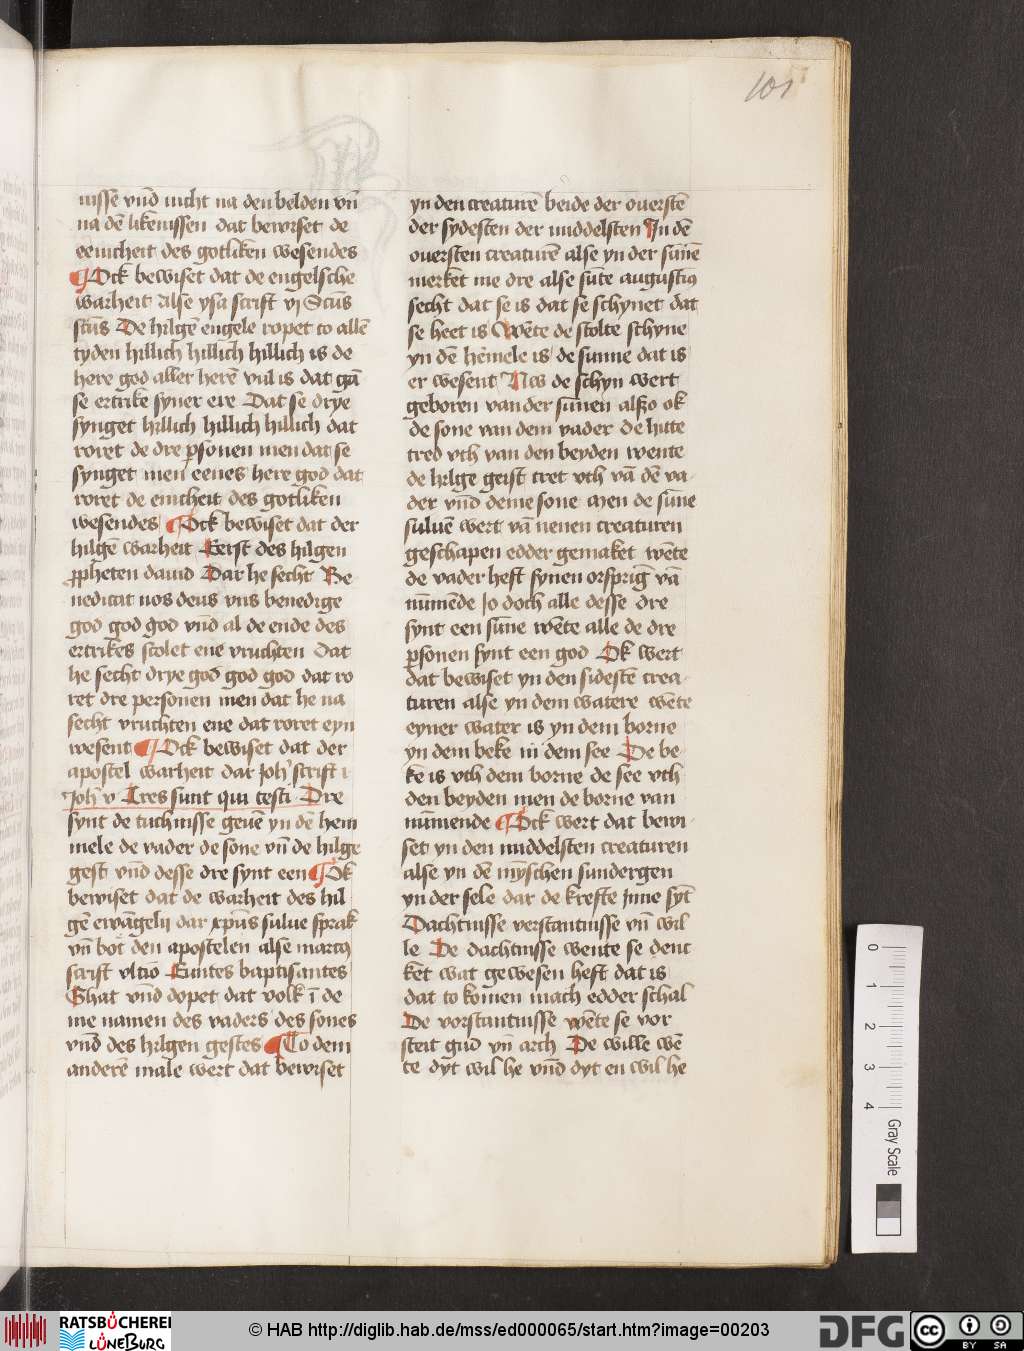 101
nisse vnd nicht na den belden vn̄
na dē likenissen dat bewiset de
eenicheit des gotliken wesendes
¶ Ock bewiset dat de engelsche
warheit Alse ysa scrift vj Scūs
scūs De hilgē engele ropet to allē
tyden hillich hillich hillich is de
here god aller herē vul is dat gā
se ertrike syner ere Dat se drye
synget hillich hillich hillich dat
roret de dre ꝑsonen men dat se
synget men eenes here god dat
roret de enicheit des gotliken
wesendes ¶ Ock bewiset dat der
hilgē warheit Eerst des hilgen
ꝓpheten dauid Dar he secht Be
nedicat nos deus vns benedige
god god god vnd al de ende des
ertrikes scolet ene vruchten Dat
he secht drye god god god dat ro
ret dre personen men dat he na
secht vruchten ene dat roret eyn
wesent ¶ Ock bewiset dat der
apostel warheit dar Joh' scrift i
Joh' v Tres sunt qui testi Dre
synt de tuchnisse geuē yn dē hem
mele de vader de sone vn̄ de hilge
gest vnd desse dre synt een ¶ Ok
bewiset dat de warheit des hil
gē ewāgelij dar xp̄us sulue sprak
vn̄ bot den apostelen alse marcꝰ
scrift vltīo Euntes baptisantes
Ghat vnd dopet dat volk ī de
me namen des vaders des sones
vnd des hilgen gestes ¶ To dem
anderē male wert dat bewiset
yn den creaturē beide der ouerstē
der sydesten der middelsten In dē
ouersten creaturē alse yn der sūnē
merket me dre alse sūte augustinꝰ
secht dat se is dat se schynet dat
se heet is Wēte de stolte schyne
yn dē hēmele is de sunne dat is
er wesent Nw de schyn wert
geboren van der sūnen alszo ok
de sone van dem vader de hitte
tred vth van den beyden wente
de hilge geist tret vth vā dē va-
der vnd deme sone Men de sūne
suluen wert vā nenen creaturen
geschapen edder gemaket wēte
de vader heft synen orsprīg vā
nūmēde Jo doch alle desse dre
synt een sūne wēte alle de dre
ꝑsonen synt een god Ok wert
dat bewiset yn den sidestē crea-
turen alse yn dem watere wēte
eyner water is yn dem borne
yn dem beke in dem see De be-
ke is vth dem borne de see vth
den beyden men de borne van
nūmende ¶ Ock wert dat bewi-
set yn den middelsten creaturen
alse yn dē mȳschen sundergen
yn der sele dar de krefte inne sȳt
Dachtnisse verstantnisse vn̄ wil
le De dachtnisse wente se denc
ket wat gewesen heft dat is
dat to komen mach edder schal
De vorstantnisse wēte se vor
steit gud vn̄ arch De wille wē
te dyt wil he vnd dyt en wil he
0
1
2
3
4
Gray Scale
RATSBÜCHEREI
LÜNEBURG
© HAB http://diglib.hab.de/mss/ed000065/start.htm?image=00203
DFG
cc
BY SA